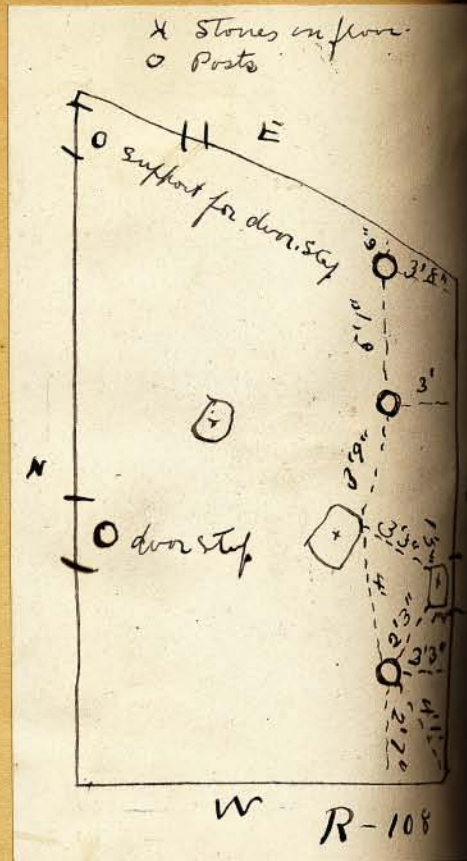 X Stones on floor.
O Posts
E
support for door.step
6"
3'8"
8'1"
3'
8'9"
N
door step
3'3"
1'5"
4"
2'3"
3'3"
4'1"
2'2"
W
R-108